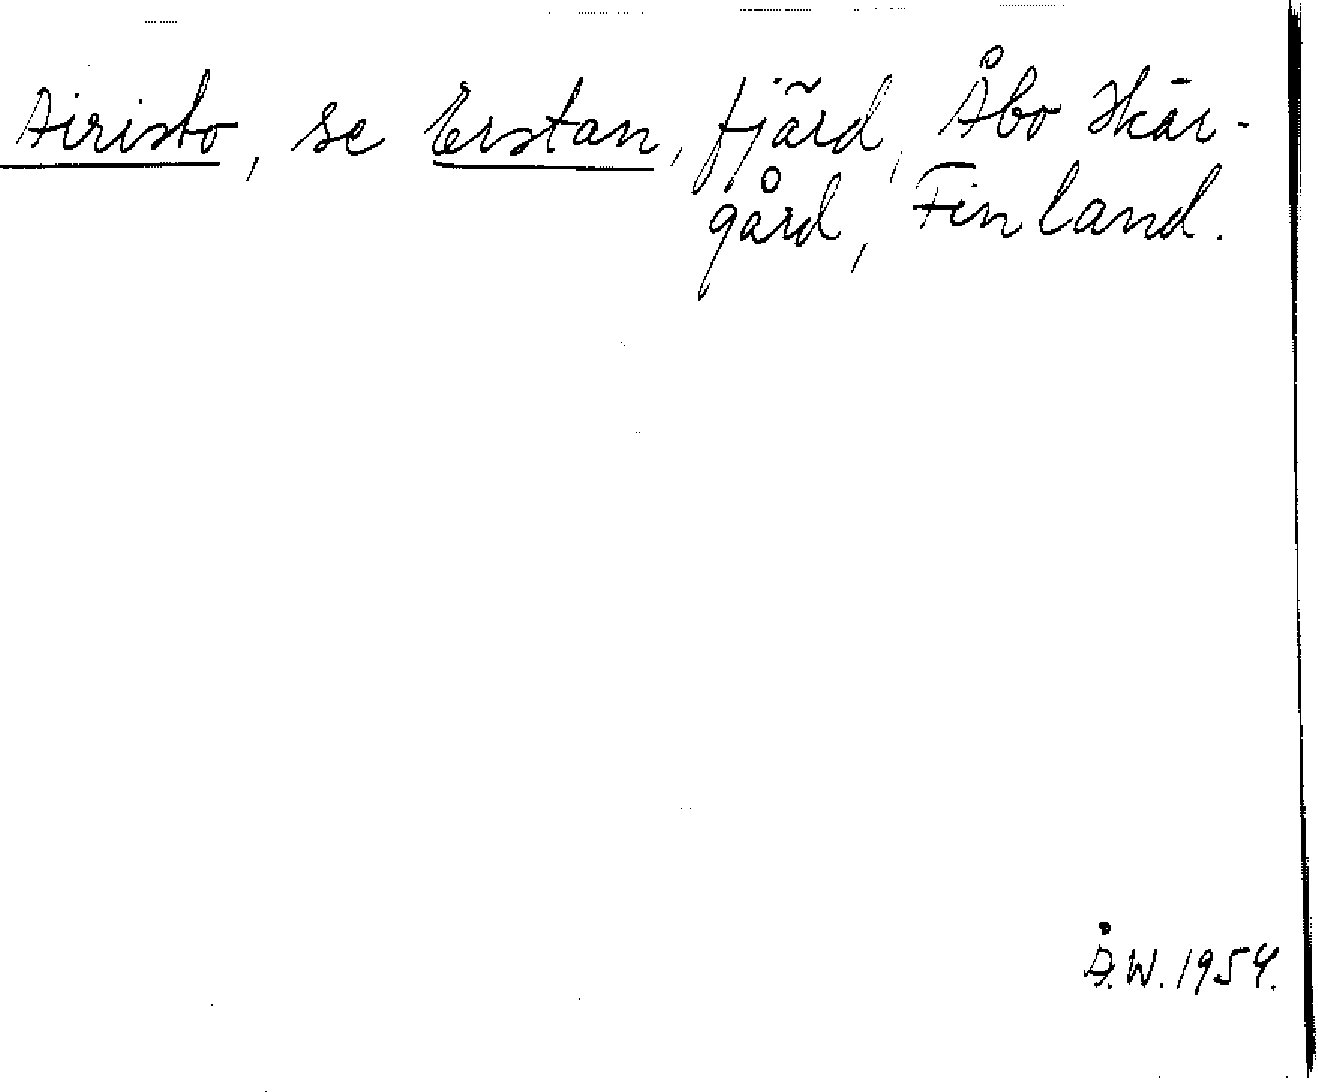 Airisto, se Erstan, fjärd, Åbo Skär-
gård, Finland.
Å.W. 1954.